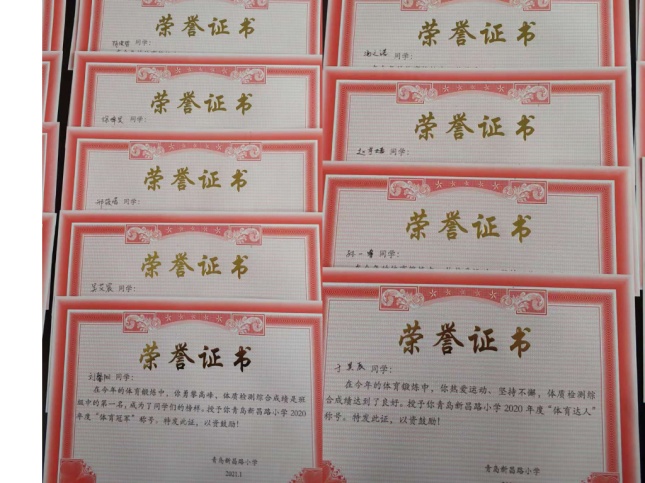 荣誉证书
同学：
荣誉证书
同学：
荣誉证书
同学：
荣誉证书
同学：
荣誉证书
同学：
在今年的体育锻炼中，你勇攀高峰，体质检测综合成绩是班
级中的第一名，成为了同学们的榜样。授予你青岛新昌路小学2020
年度“体育冠军”称号。特发此证，以资鼓励！
青岛新昌路小学
2021.1
荣誉证书
同学：
荣誉证书
同学：
荣誉证书
孙一 同学：
荣誉证书
同学：
在今年的体育锻炼中，你热爱运动、坚持不懈，体质检测综
合成绩达到了良好。授予你青岛新昌路小学2020年度“体育达人”
称号。特发此证，以资鼓励！
青岛新昌路小学